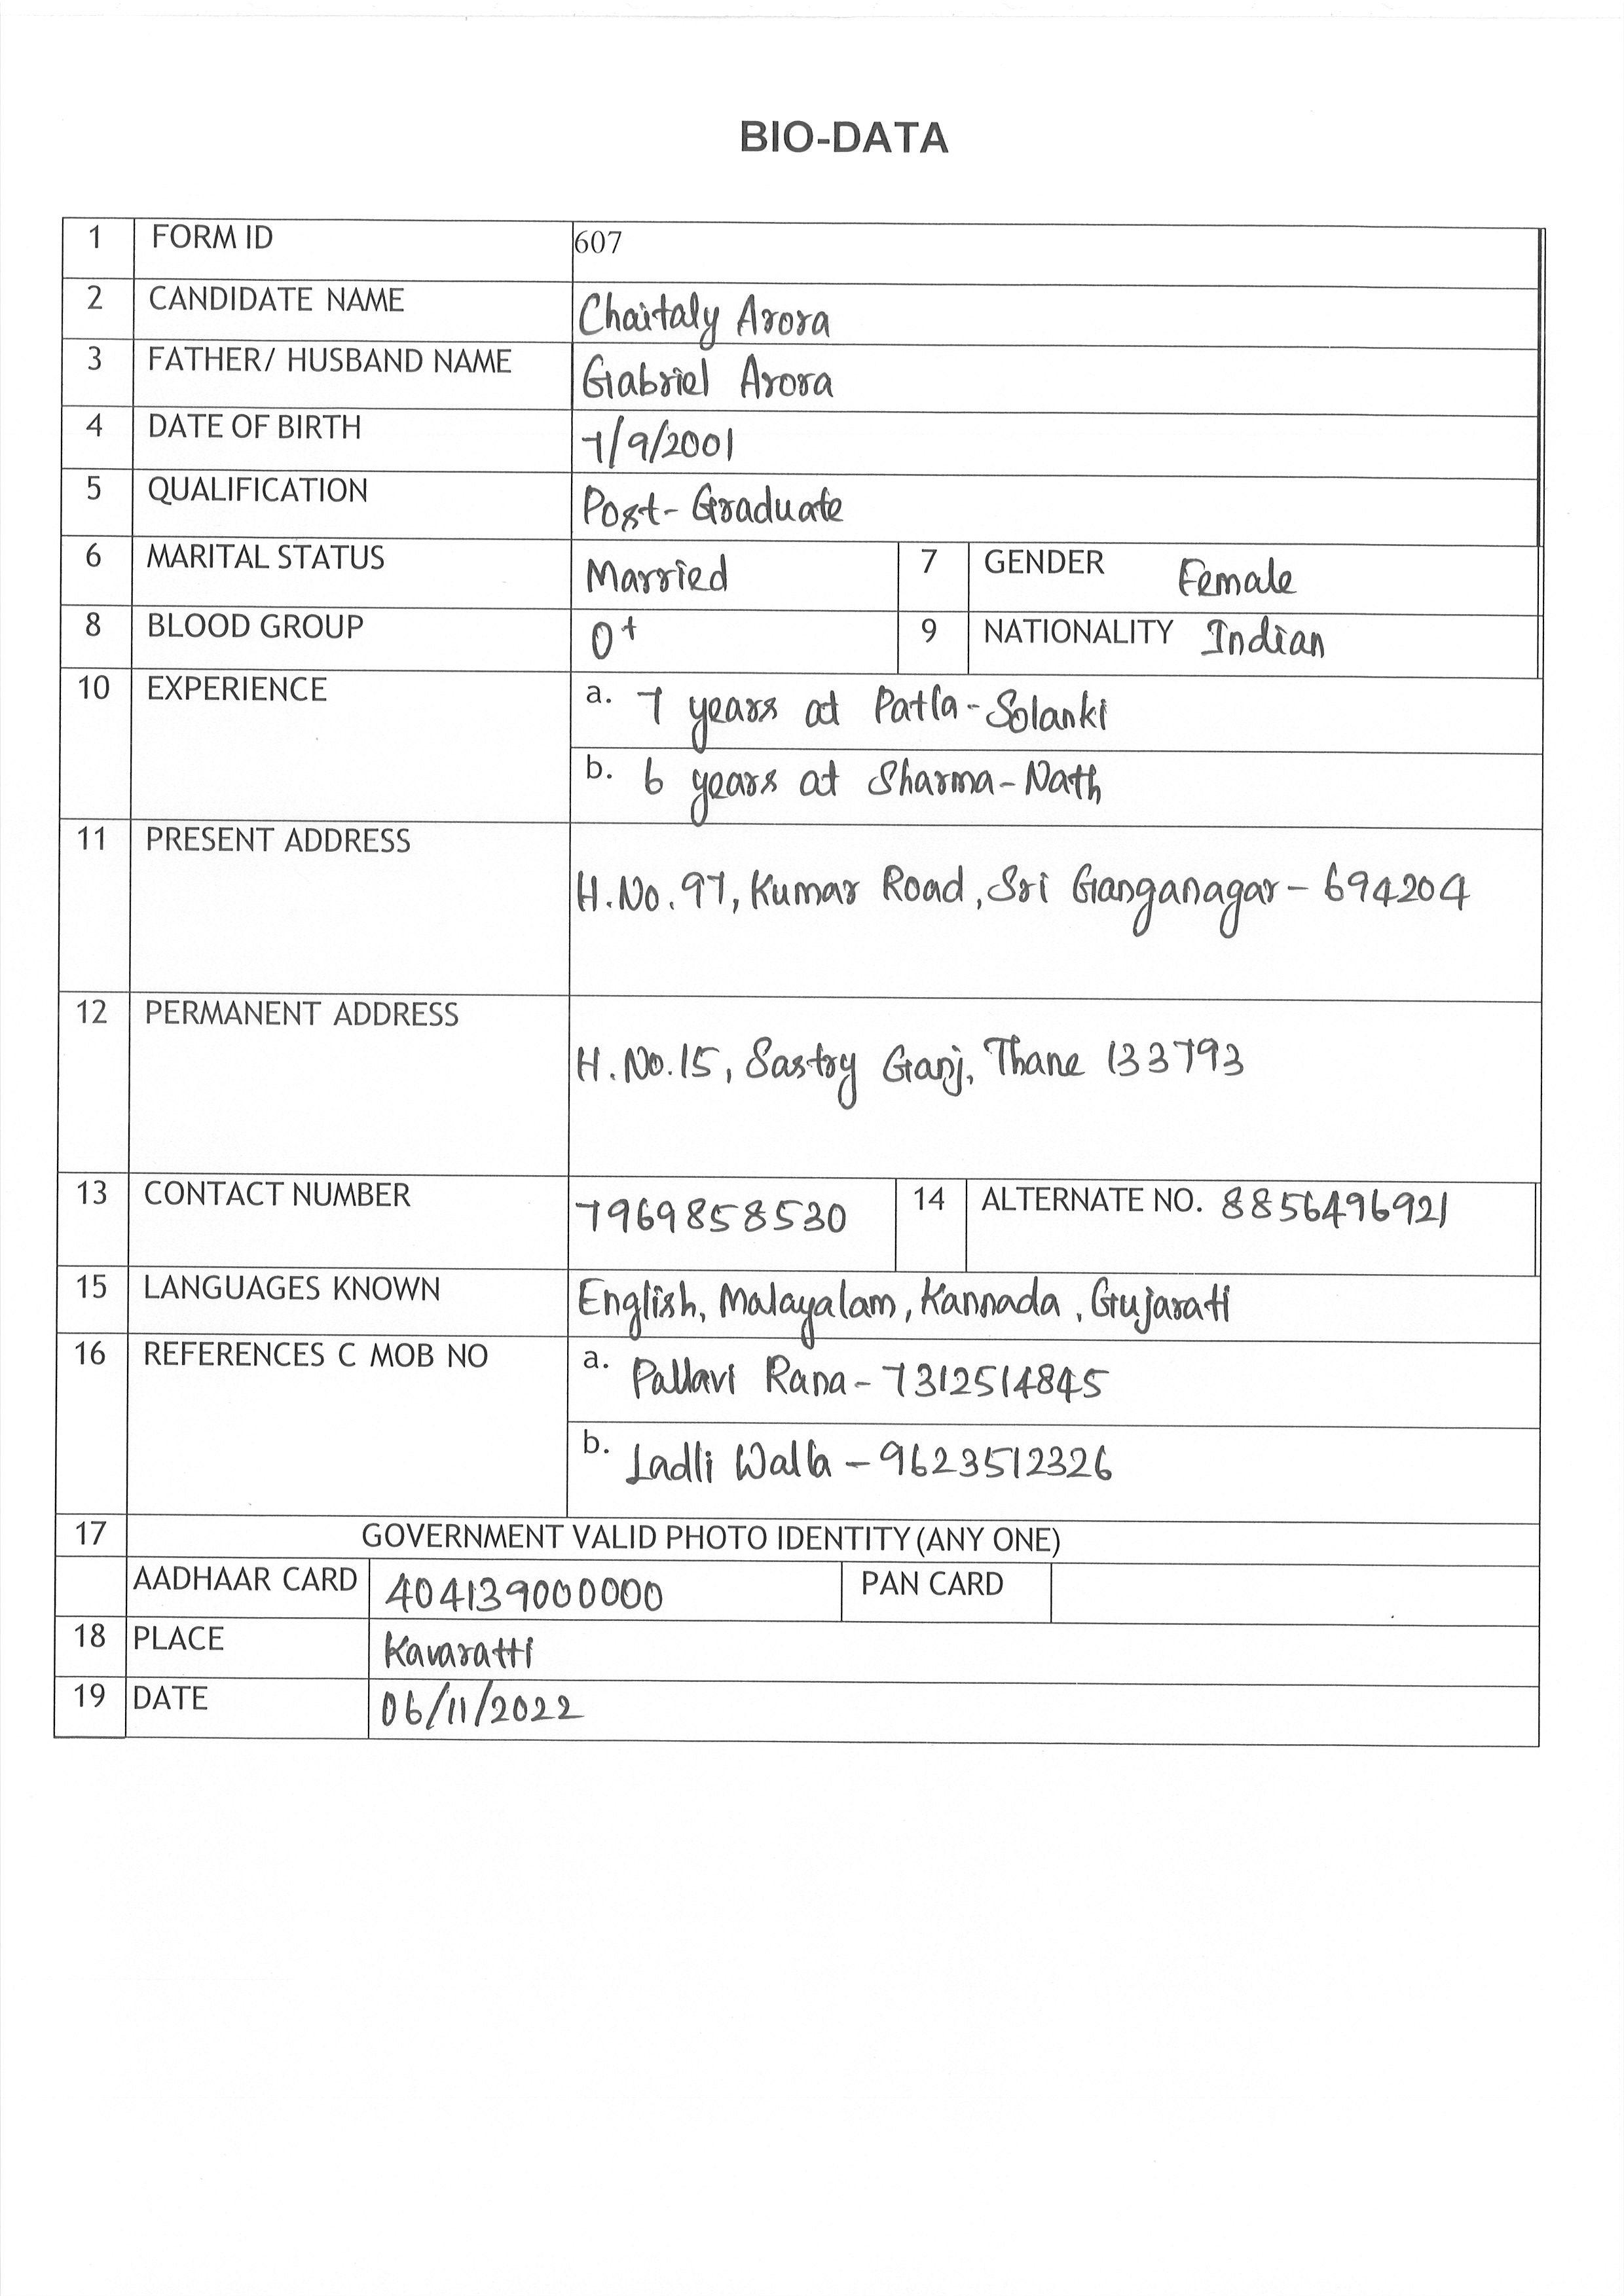 BIO-DATA
1 FORM ID 607
2 CANDIDATE NAME Chaitaly Arora
3 FATHER/ HUSBAND NAME Gabriel Arora
4 DATE OF BIRTH 7/9/2001
5 QUALIFICATION Post-Graduate
6 MARITAL STATUS Married 7 GENDER Female
8 BLOOD GROUP O+ 9 NATIONALITY Indian
10 EXPERIENCE a. 7 years at Patla-Solanki
b. 6 years at Sharma-Nath
11 PRESENT ADDRESS
H.No. 97, Kumar Road, Sri Ganganagar - 694204
12 PERMANENT ADDRESS
H.No. 15, Sastry Ganj, Thane 133793
13 CONTACT NUMBER 7969858530 14 ALTERNATE NO. 8856496921
15 LANGUAGES KNOWN English, Malayalam, Kannada, Gujarati
16 REFERENCES C MOB NO a. Pallavi Rana - 7312514845
b. Ladli Walla - 9623512326
17 GOVERNMENT VALID PHOTO IDENTITY (ANY ONE)
AADHAAR CARD 404139000000 PAN CARD
18 PLACE Kavaratti
19 DATE 06/11/2022